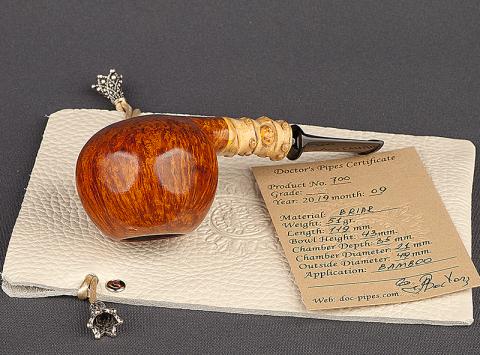 Doctor's Pipes Certificate
Product No. 700
Grade:
Year: 2019 month: 09
Material: BRIAR
Weight: 51 gr.
Length: 119 mm.
Bowl Height: 43 mm.
Chamber Depth: 35 mm.
Chamber Diameter: 21 mm.
Outside Diameter: 49 mm.
Application: BAMBOO
Web: doc-pipes.com